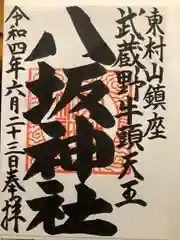 東村山鎮座
武蔵野牛頭天王
八坂神社
令和四年六月二十三日奉拝